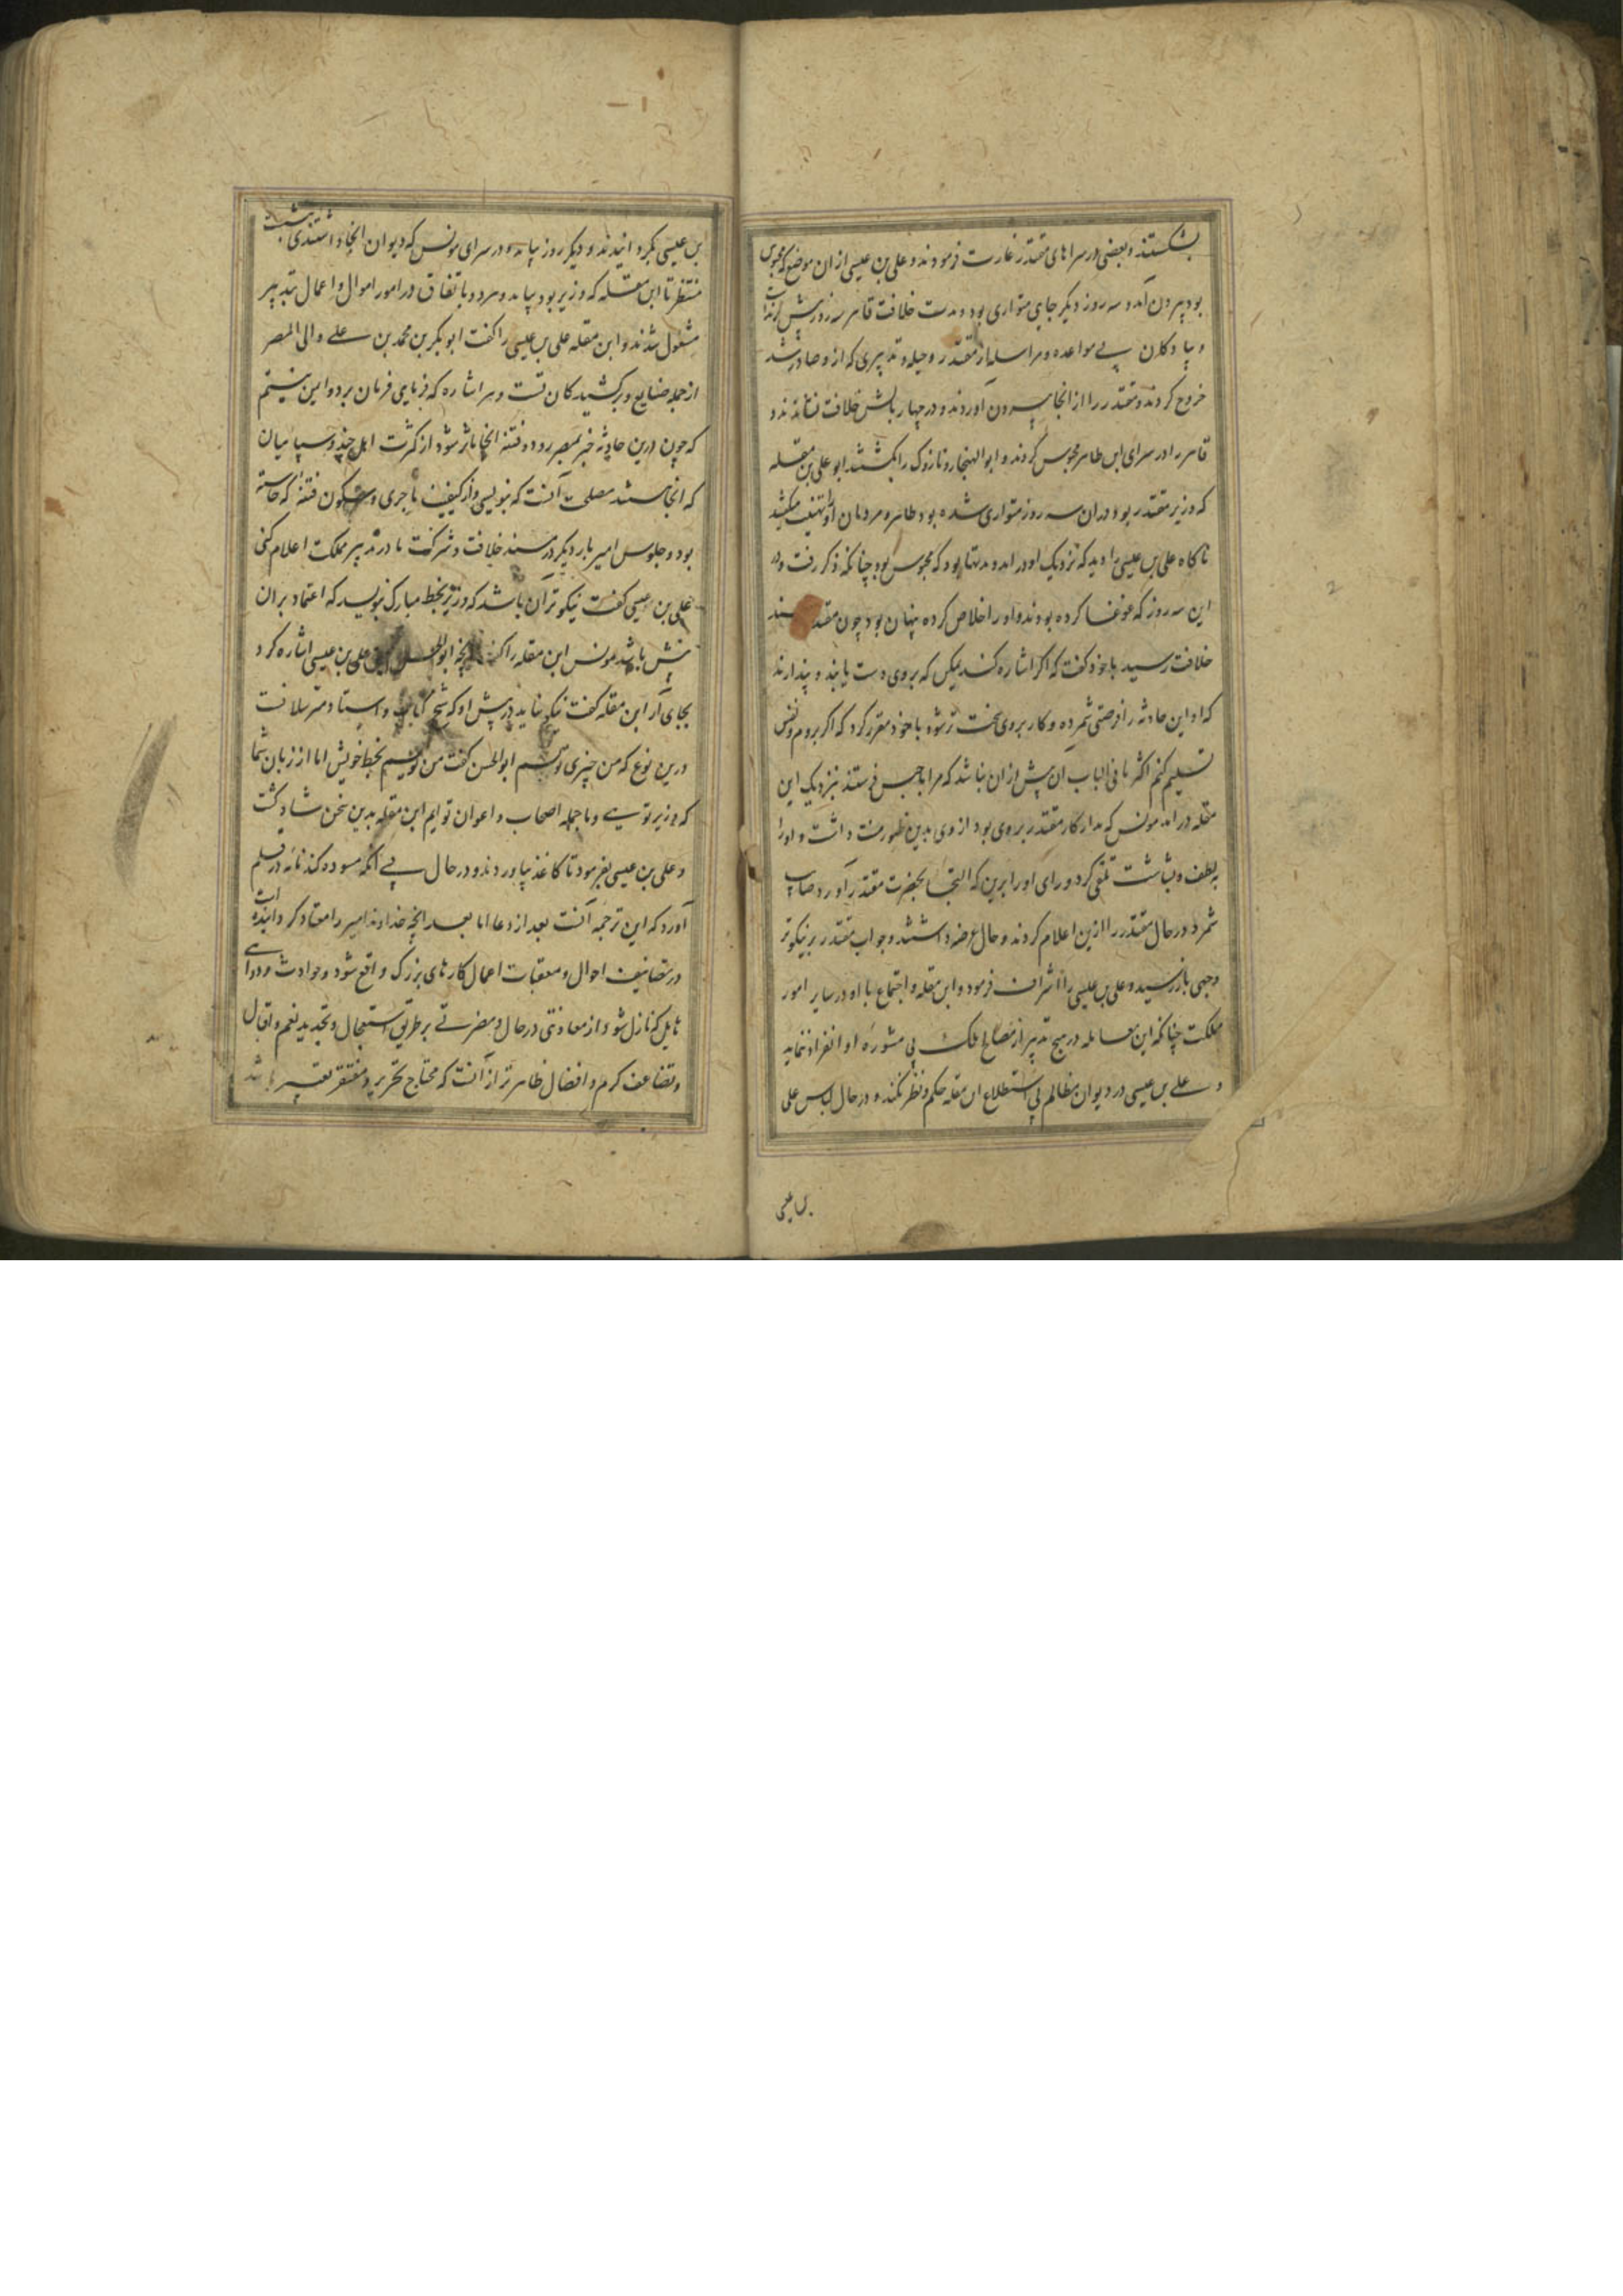 بشکستند و بعضی در سراهای مقتدر غارت فرمودند و علی بن عیسی از ان موضع که محبوس
بود بیرون آمد و سه روز دیگر جای متواری بود و مدت خلافت قاهر سه روز بیش
و پیادگان بی مواعده و مراسله از مقتدر و حیله و تدبیری که ازو صادر شد
خروج کردند و مقتدر را از انجا بیرون آوردند و در چهار بالش خلافت نشاندند و
قاهر را در سرای ابن طاهر محبوس کردند و ابو الهیجا و نازوک را بکشتند ابو علی بن مقله
که وزیر مقتدر بود در ان سه روز متواری شده بود ظاهر و مردمان او را تهنیت میکنند
ناکاه علی بن عیسی را دید که نزدیک او در امد و مدتها بود که محبوس بود چنانکه ذکر رفت و در
این سه روز که غوغا کرده بودند و او را خلاص کرده پنهان بود چون مقتدر
خلافت رسید با خود کفت که اکر اشاره کند بیکی که بروی دست یابند و پندارند
که او این حادثه را فرصتی شمرده و کار بروی سخت تر شود با خود مقرر کرد که اکر بروم و نفس
تسلیم کنم اکثر ما فی الباب آن بیش از ان نباشد که مرا با حبس فرستند بنزدیک ابن
مقله در امد مونس که مدار کار مقتدر بروی بود از وی بدین ظهور منت داشت و او را
به لطف و بشاشت تلقی کرد و رای او را برین که التجا بحضرت مقتدر آورد صایب
شمرد و در حال مقتدر را ازین اعلام کردند و حال عرضه داشتند و جواب مقتدر بر نیکوتر
وجهی باز رسید و علی بن عیسی را اشراف فرمود و ابن مقله و اجتماع با او در سایر امور
مملکت چنانکه ابن مقله در هیچ تدبیر از مصالح ملک بی مشوره او انفراد ننماید
و علی بن عیسی در دیوان مظالم بی استطلاع ابن مقله حکم و نظر نکند و در حال لباس علی
بن عیسی
بن عیسی بکردانیدند و دیکر روز بیامد و در سرای مونس که دیوان انجا داشتندی بنشست
منتظر تا ابن مقله که وزیر بود بیامد و هردو باتفاق در امور اموال و اعمال بتدبیر
مشغول شدند و ابن مقله علی بن عیسی را کفت ابو بکر بن محمد بن علی والی المصر
از جمله صنایع و برکشیدکان تست و هر اشاره که فرمایی فرمان برد و ایمن نیستم
که چون درین حادثه خبر بمصر رود و فتنه انجا ثائر شود از کثرت اهل جند و سپاهیان
که انجا هستند مصلحت آنست که بنویسی و از کیفیت ماجری و سکون فتنه که خاسته
بود و جلوس امیر بار دیکر در مسند خلافت و شرکت ما در تدبیر مملکت اعلام کنی
علی بن عیسی کفت نیکوتر آن باشد که وزیر بخط مبارک بنویسد که اعتماد بر ان
بیش باشد مونس ابن مقله را کفت انچه ابو الحسن علی بن عیسی اشاره کرد
بجای آر ابن مقله کفت نیکو نباید در پیش او که شیخ کتاب و استاد مترسلانست
درین نوع که من چیزی نویسم ابو الحسن کفت من نویسم بخط خویش اما از زبان شما
که وزیر تویی و ما جمله اصحاب و اعوان تو ایم ابن مقله بدین سخن شاد کشت
و علی بن عیسی بفرمود تا کاغذ بیاوردند و در حال بی انکه مسوده کند نامه در قلم
آورد که این ترجمه آنست بعد از دعا اما بعد انچه خداوند امیر را معتاد کردانیده است
در تصانیف احوال و معقبات اعمال کارهای بزرک واقع شود و حوادث و دواهی
هایل که نازل شود از معاونتی در حال و مضرتی بر طریق استعجال و تجدید نعم و اقبال
و تضاعف کرم و افضال ظاهر تر از آنست که محتاج تحریر و مفتقر تعبیر باشد